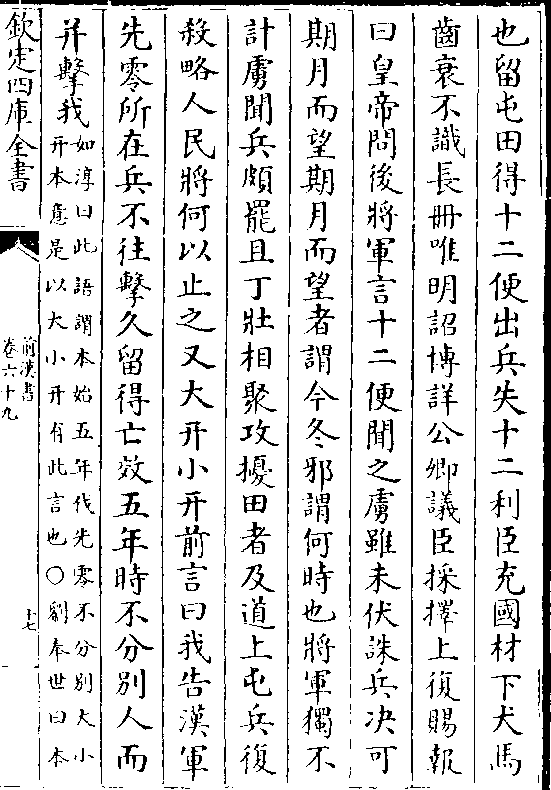 也留屯田得十二便出兵失十二利臣充國材下犬馬
齒衰不識長冊唯明詔博詳公卿議臣採擇上復賜報
曰皇帝問後將軍言十二便聞之虜雖未伏誅兵决可
期月而望期月而望者謂今冬邪謂何時也將軍獨不
計虜聞兵頗罷且丁壯相聚攻擾田者及道上屯兵復
殺略人民將何以止之又大幵小幵前言曰我告漢軍
先零所在兵不往擊久留得亡效五年時不分別人而
并擊我如淳曰此語謂本始五年伐先零不分別大小
幵本意是以大小幵有此言也○劉奉世曰本
欽定四庫全書
前漢書
卷六十九
十七